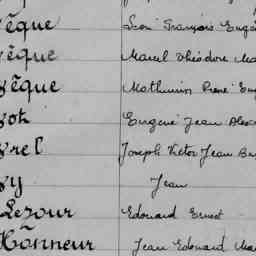 êque Léon François Eugè
êque Marcel Théodore Ma
êque Mathurin René Eug
Eugène Jean Alex
Joseph Victor Jean Ba
Jean
Lezour Edouard Ernest
Honneur Jean Edouard Ma